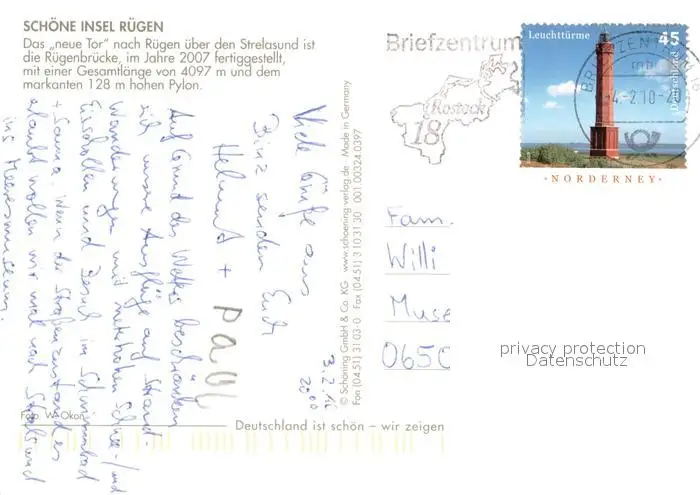 SCHÖNE INSEL RÜGEN
Das „neue Tor" nach Rügen über den Strelasund ist
die Rügenbrücke, im Jahre 2007 fertiggestellt,
mit einer Gesamtlänge von 4097 m und dem
markanten 128 m hohen Pylon.
Viele Grüße aus
Binz senden Euch
Helmut + Paul
Auf Grund des Wetters beschränken
sich unsere Ausflüge auf Strand-
Wanderungen mit meterhohen Schnee-/und
Eisschollen und Besuch im Schwimmbad
+ Sauna. Wenn der Straßenzustand es
erlaubt wollen wir mal nach Stralsund
ins Meeresmuseum.
3.2.
Foto: W. Okon
Deutschland ist schön – wir zeigen
© Schöning GmbH & Co. KG · www.schoening-verlag.de · Made in Germany
Fon (04 51) 31 03-0 · Fax (04 51) 3 10 31 30 001.00324.0397
Briefzentrum
Rostock
18
Leuchttürme
45
Deutschland
BRIEFZENTRUM
-4.-2.10-2
· NORDERNEY ·
Fam.
Willi
Muse
0650
privacy protection
Datenschutz